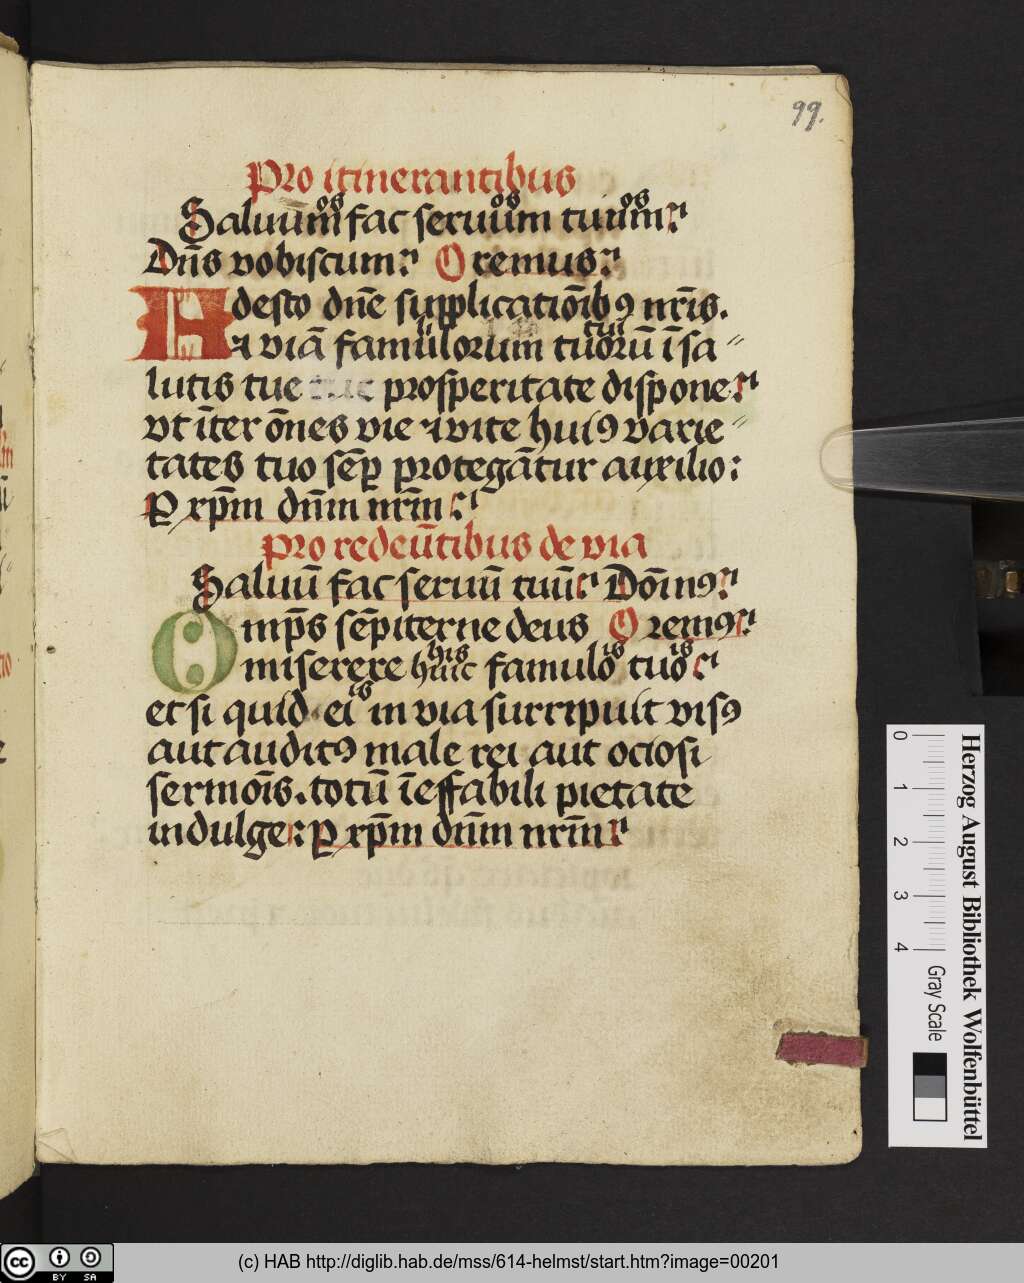 99.
Pro itinerantibus
os os os
Saluum fac seruum tuum
Dn̄s vobiscum Oremus
Adesto dn̄e supplicatiōibꝯ nr̄is.
li tui
⁊ viā famulorum tuorū ī sa
lutis tue prosperitate dispone
vt īter ōnes vie ⁊ vite huiꝯ varie
tates tuo sēꝑ protegātur auxilio:
Ꝑ xp̄m dn̄m nr̄m
Pro redeūtibus de via
Saluū fac seruū tuū Dōinꝯ
Omp̄s sēpiterne deus Oremꝯ
his is is
miserere huic famulo tuo
is
et si quid ei in via surripuit visꝯ
aut auditꝯ male rei aut ociosi
sermoīs. totū īeffabili pietate
indulge: Ꝑ xp̄m dn̄m nr̄m
0 1 2 3 4
Gray Scale
Herzog August Bibliothek Wolfenbüttel
cc BY SA
(c) HAB http://diglib.hab.de/mss/614-helmst/start.htm?image=00201